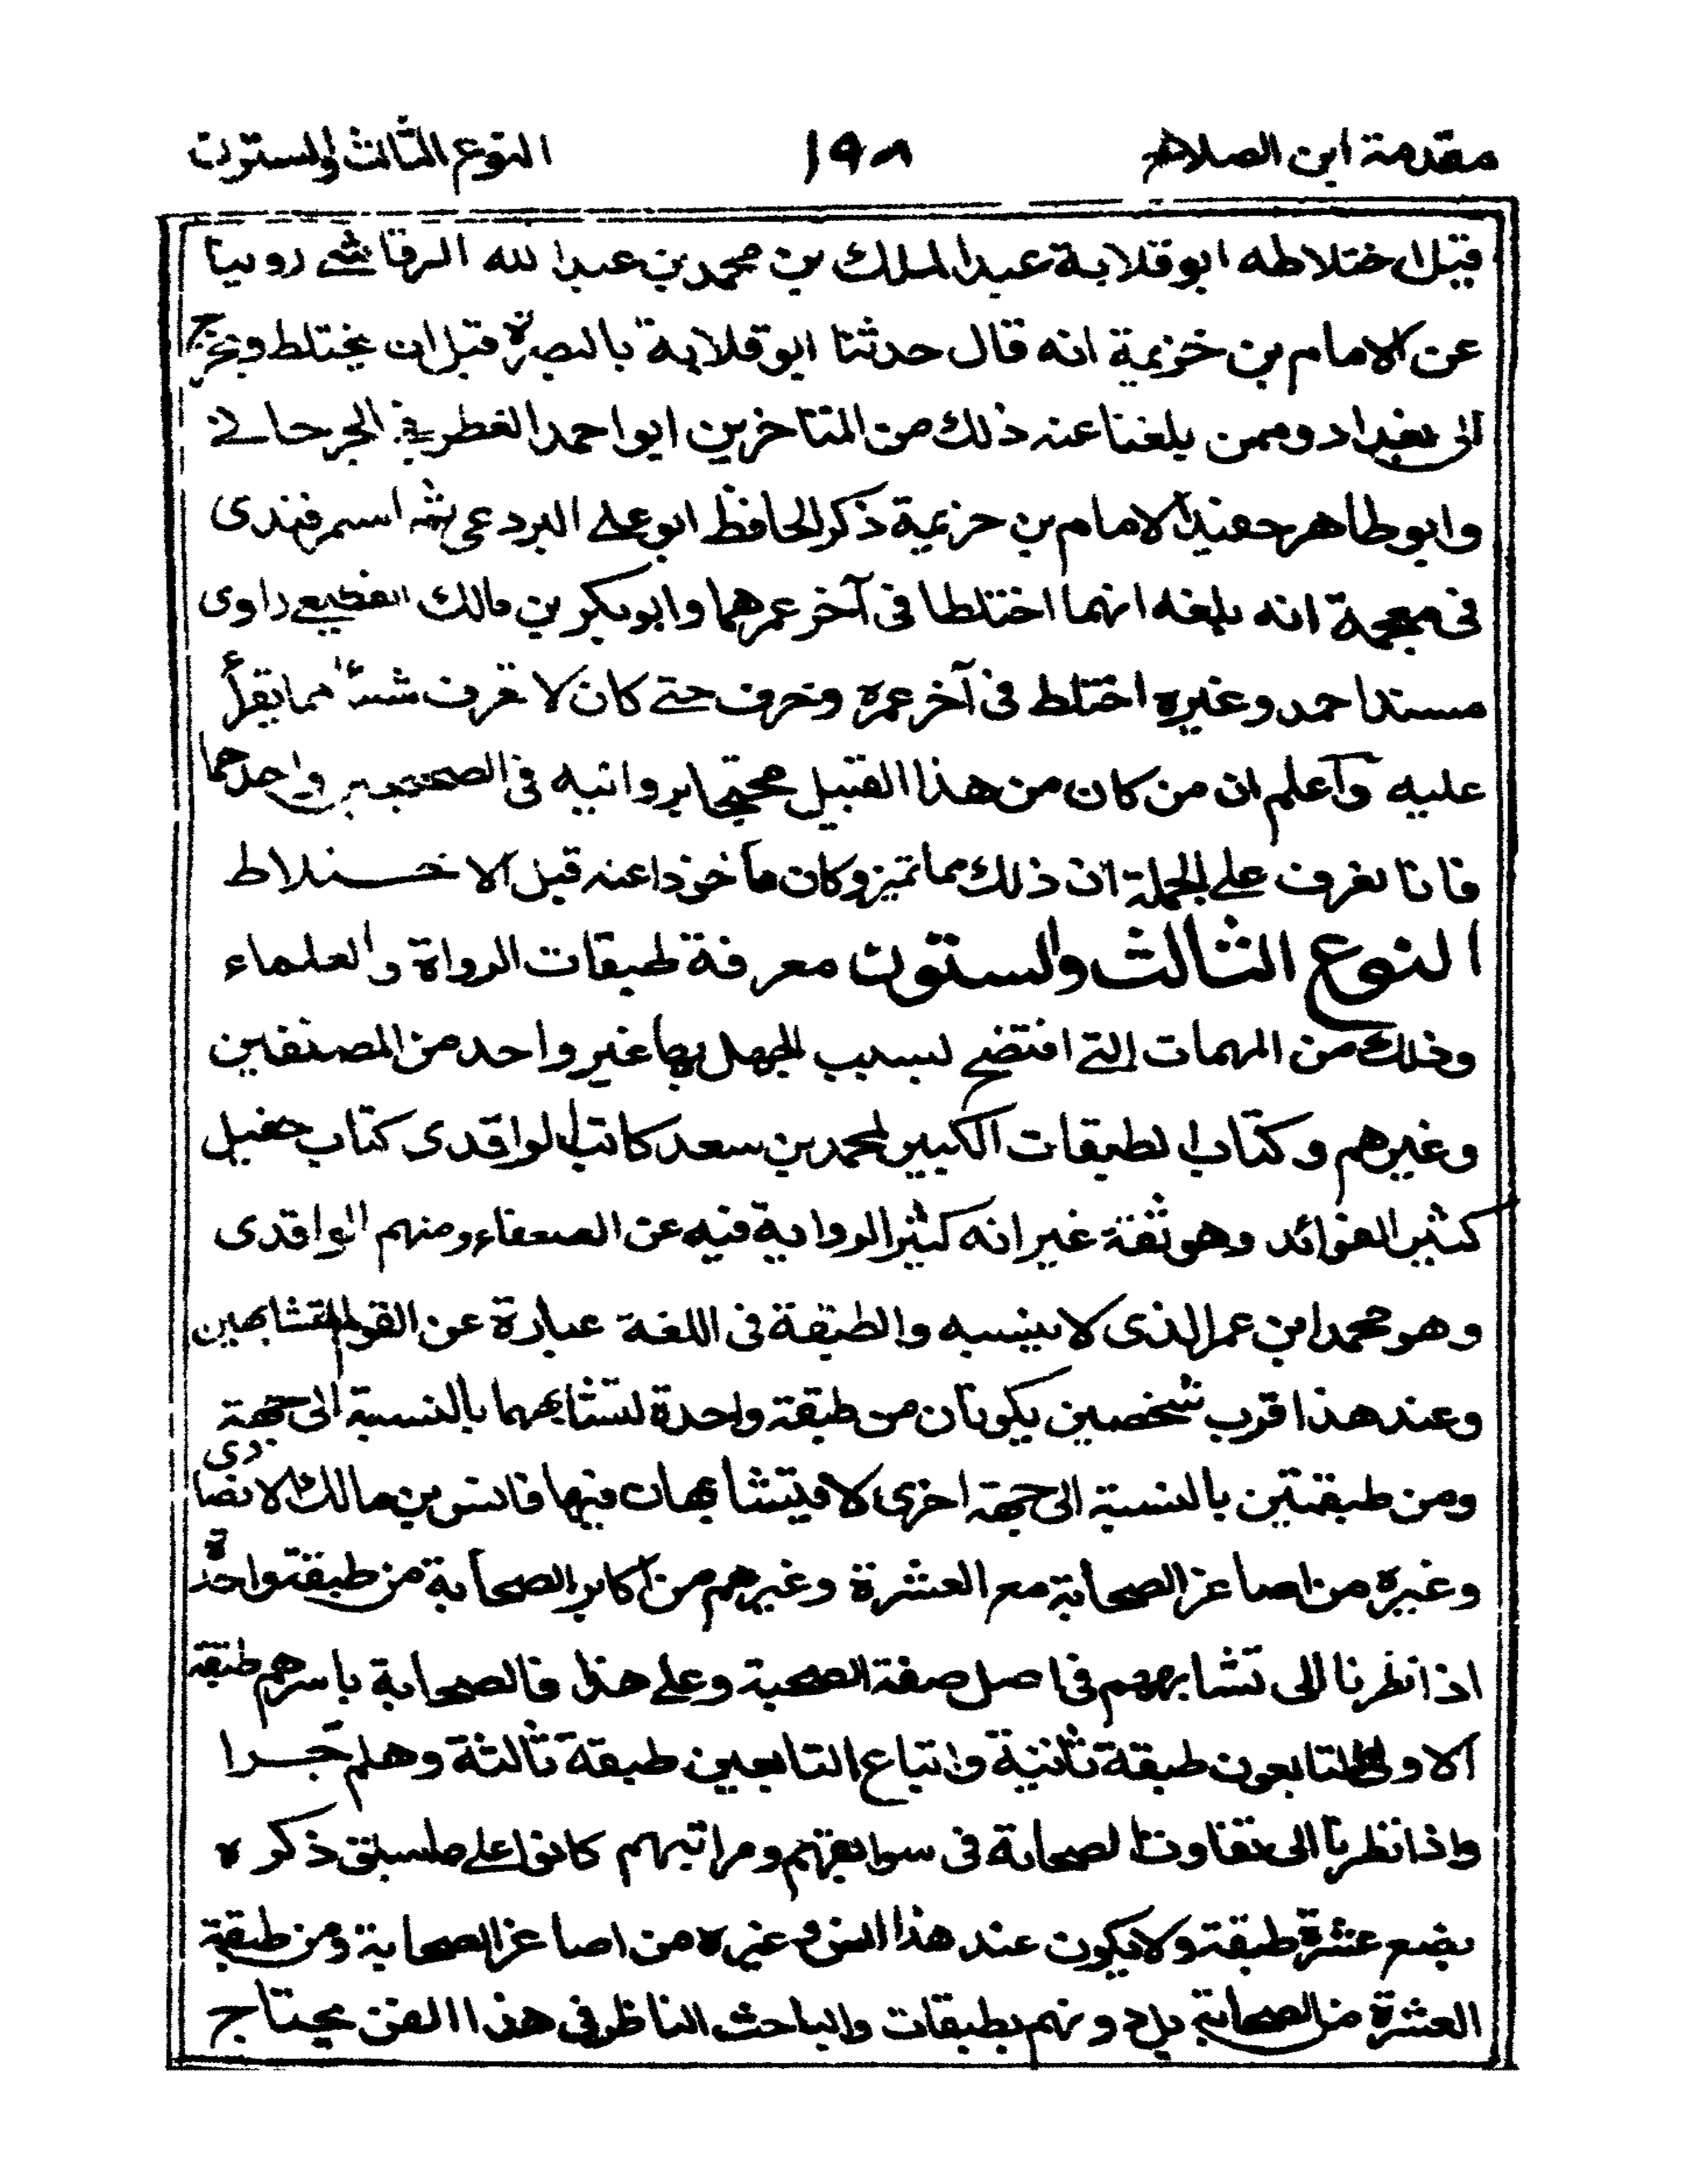 مقدمة ابن الصلاح ١٩٨ النوع الثالث والستون
قبل اختلاطه ابو قلابة عبد الملك بن محمد بن عبد الله الرقاشي روينا
عن الامام بن خزيمة انه قال حدثنا ابو قلابة بالبصرة قبل ان يختلط ويخرج
الى بغداد وممن بلغنا عنه ذلك من المتاخرين ابو احمد الغطريفي الجرجاني
وابو طاهر حفيد الامام بن خزيمة ذكر الحافظ ابو علي البردعي ثم السمرقندي
في معجمة انه بلغه انهما اختلطا في آخر عمرهما وابو بكر بن مالك القطيعي راوى
مسند احمد وغيره اختلط في آخر عمره وخرف حتى كان لا يعرف شيئا مما يقرأ
عليه وآعلم ان من كان من هذا القبيل محتجا بروايته في الصحيحين واحدهما
فانا نعرف على الجملة ان ذلك مما تميز وكان مأخوذا عنه قبل الاختلاط
النوع الثالث والستون معرفة طبقات الرواة والعلماء
وذلك من المهمات التي افتضح لسبب الجهل بها غير واحد من المصنفين
وغيرهم وكتاب الطبقات الكبير لمحمد بن سعد كاتب الواقدى كتاب حفيل
كثير الفوائد وهو ثقة غير انه كثير الرواية فيه عن الضعفاء ومنهم الواقدى
وهو محمد ابن عمر الذى لا ينسبه والطبقة في اللغة عبارة عن القوم المتشابهين
وعند هذا فرب شخصين يكونان من طبقة واحدة لتشابهما بالنسبة الى جهة
ومن طبقتين بالنسبة الى جهة اخرى لا يتشابهان فيها فانس بن مالك الانصارى
وغيره من اصاغر الصحابة مع العشرة وغيرهم من اكابر الصحابة من طبقة واحدة
اذا نظرنا الى تشابههم في اصل صفة الصحبة وعلى هذا فالصحابة باسرهم طبقة
الاولى والتابعون طبقة ثانية واتباع التابعين طبقة ثالثة وهلم جرا
واذا نظرنا الى تفاوت الصحابة في سوابقهم ومراتبهم كانوا على ما سبق ذكره
بضع عشرة طبقة ولا يكون عند هذا انس وغيره من اصاغر الصحابة ومن طبقة
العشرة من الصحابة بل دونهم بطبقات والباحث الناظر في هذا الفن يحتاج